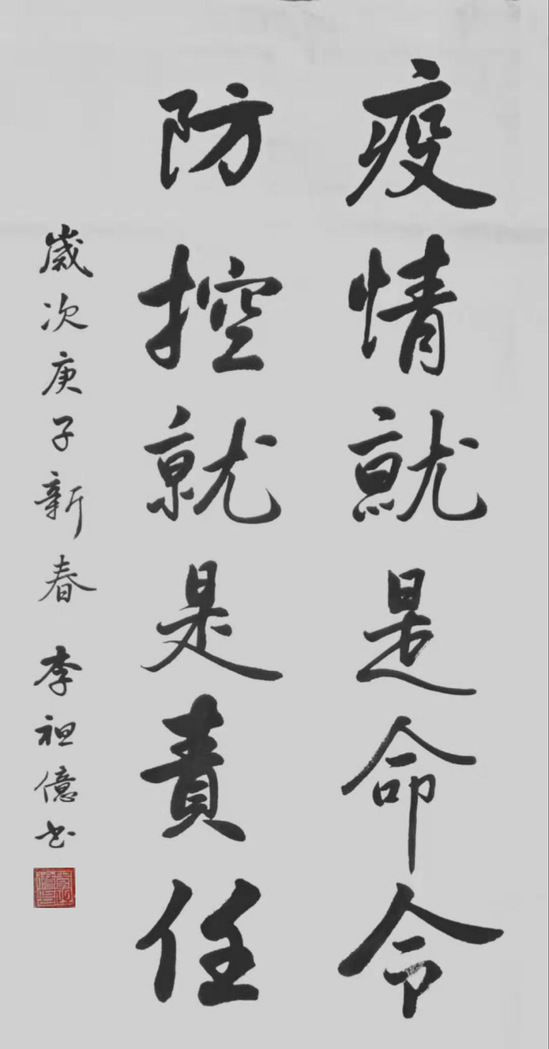 疫情就是命令
防控就是責任
歲次庚子新春 李祖億书